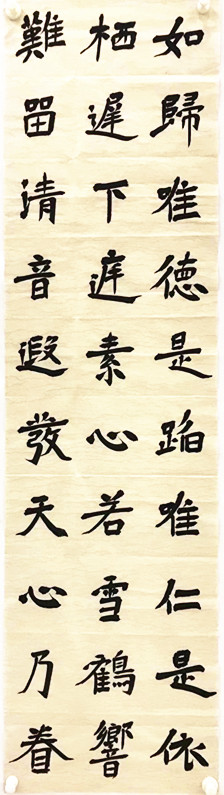 如歸唯德是蹈唯仁是依
栖遲下庭素心若雪鶴響
難留清音遐發天心乃眷